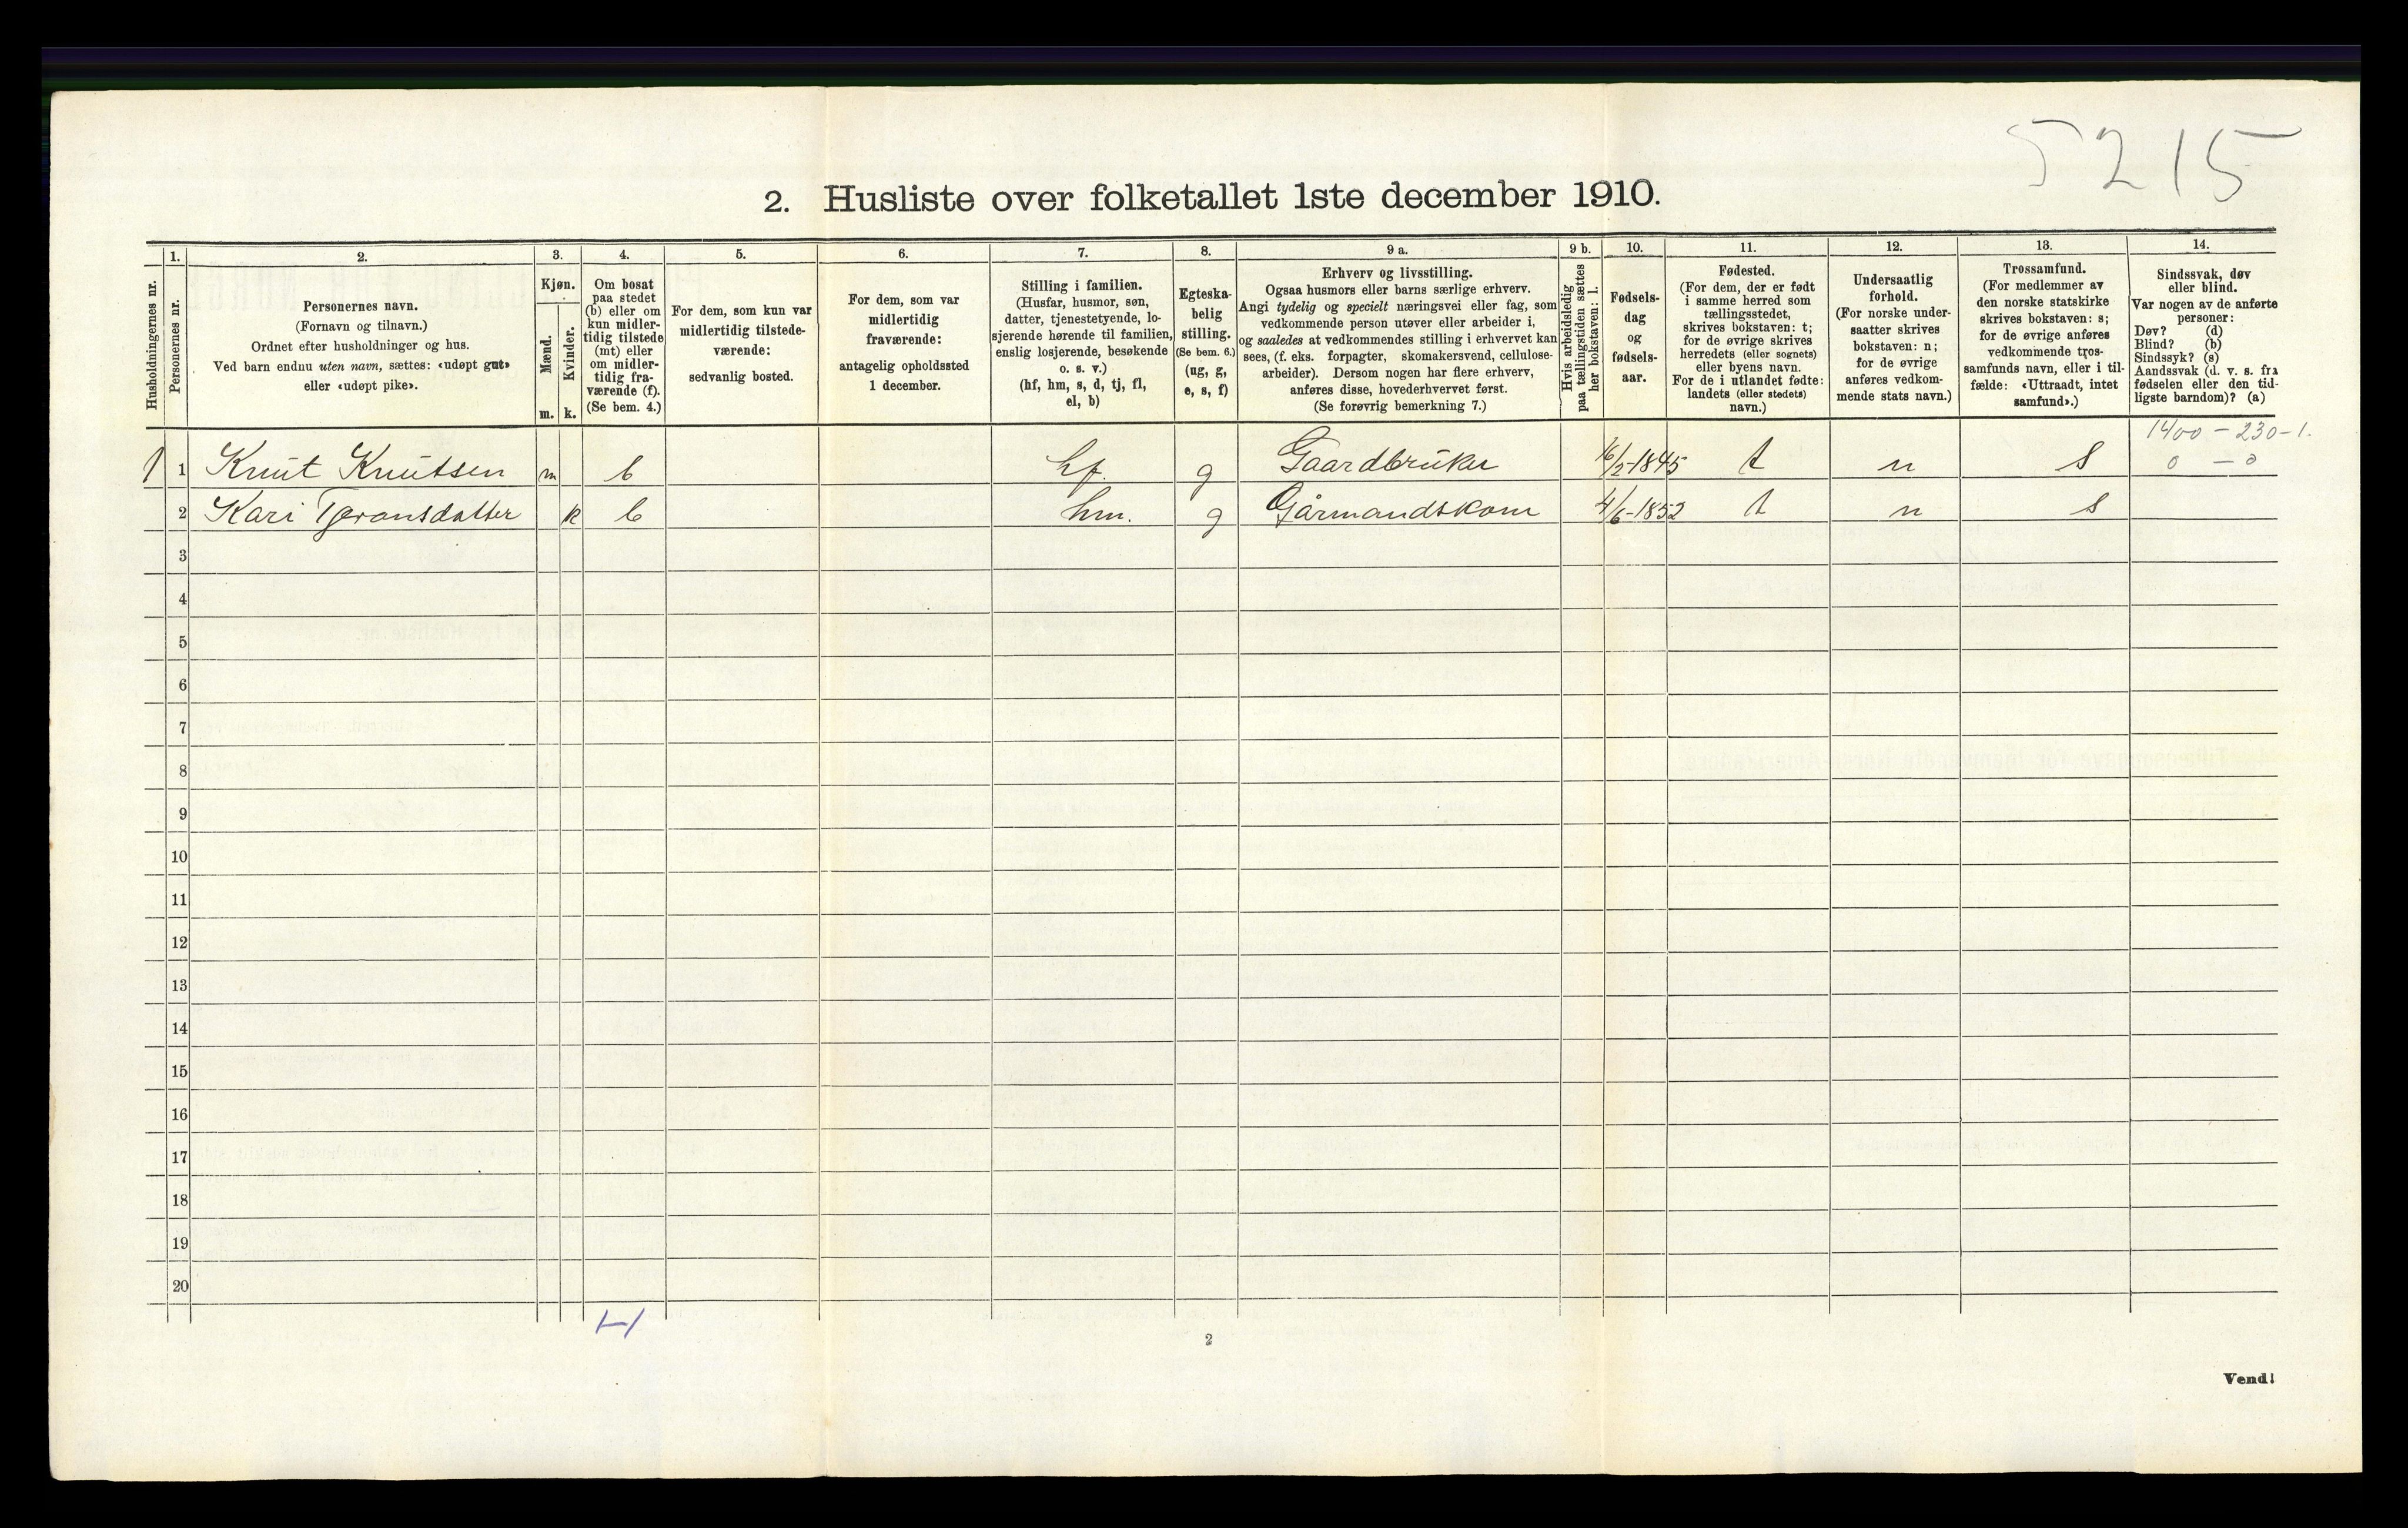 5215
2. Husliste over folketallet 1ste december 1910.
Husholdningernes nr.
1.
Personernes nr.
2.
Personernes navn.
(Fornavn og tilnavn.)
Ordnet efter husholdninger og hus.
Ved barn endnu uten navn, sættes: «udøpt gut»
eller «udøpt pike».
3.
Kjøn.
Mænd.
m.
Kvinder.
k.
4.
Om bosat
paa stedet
(b) eller om
kun midler-
tidig tilstede
(mt) eller
om midler-
tidig fra-
værende (f).
(Se bem. 4.)
5.
For dem, som kun var
midlertidig tilstede-
værende:
sedvanlig bosted.
6.
For dem, som var
midlertidig
fraværende:
antagelig opholdssted
1 december.
7.
Stilling i familien.
(Husfar, husmor, søn,
datter, tjenestetyende, lo-
sjerende hørende til familien,
enslig losjerende, besøkende
o. s. v.)
(hf, hm, s, d, tj, fl,
el, b)
8.
Egteska-
belig
stilling.
(Se bem. 6.)
(ug, g,
e, s, f)
9 a.
Erhverv og livsstilling.
Ogsaa husmors eller barns særlige erhverv.
Angi tydelig og specielt næringsvei eller fag, som
vedkommende person utøver eller arbeider i,
og saaledes at vedkommendes stilling i erhvervet kan
sees, (f. eks. forpagter, skomakersvend, cellulose-
arbeider). Dersom nogen har flere erhverv,
anføres disse, hovederhvervet først.
(Se forøvrig bemerkning 7.)
9 b.
Hvis arbeidsledig
paa tællingstiden sættes
her bokstaven: l.
10.
Fødsels-
dag
og
fødsels-
aar.
11.
Fødested.
(For dem, der er født
i samme herred som
tællingsstedet,
skrives bokstaven: t;
for de øvrige skrives
herredets (eller sognets)
eller byens navn.
For de i utlandet fødte:
landets (eller stedets)
navn.)
12.
Undersaatlig
forhold.
(For norske under-
saatter skrives
bokstaven: n;
for de øvrige
anføres vedkom-
mende stats navn.)
13.
Trossamfund.
(For medlemmer av
den norske statskirke
skrives bokstaven: s;
for de øvrige anføres
vedkommende tros-
samfunds navn, eller i til-
fælde: «Uttraadt, intet
samfund».)
14.
Sindssvak, døv
eller blind.
Var nogen av de anførte
personer:
Døv? (d)
Blind? (b)
Sindssyk? (s)
Aandssvak (d. v. s. fra
fødselen eller den tid-
ligste barndom)? (a)
1400 - 230 - 1.
1 1 Knut Knutsen m b hf. g Gaardbruker 16/2-1845 t n s 0 - 0
2 Kari Tjeransdatter k b hm. g Gårmandskom 4/6-1852 t n s
3
4
5
6
7
8
9
10
11
12
13
14
15
16
17
18
19
20
2
Vend!